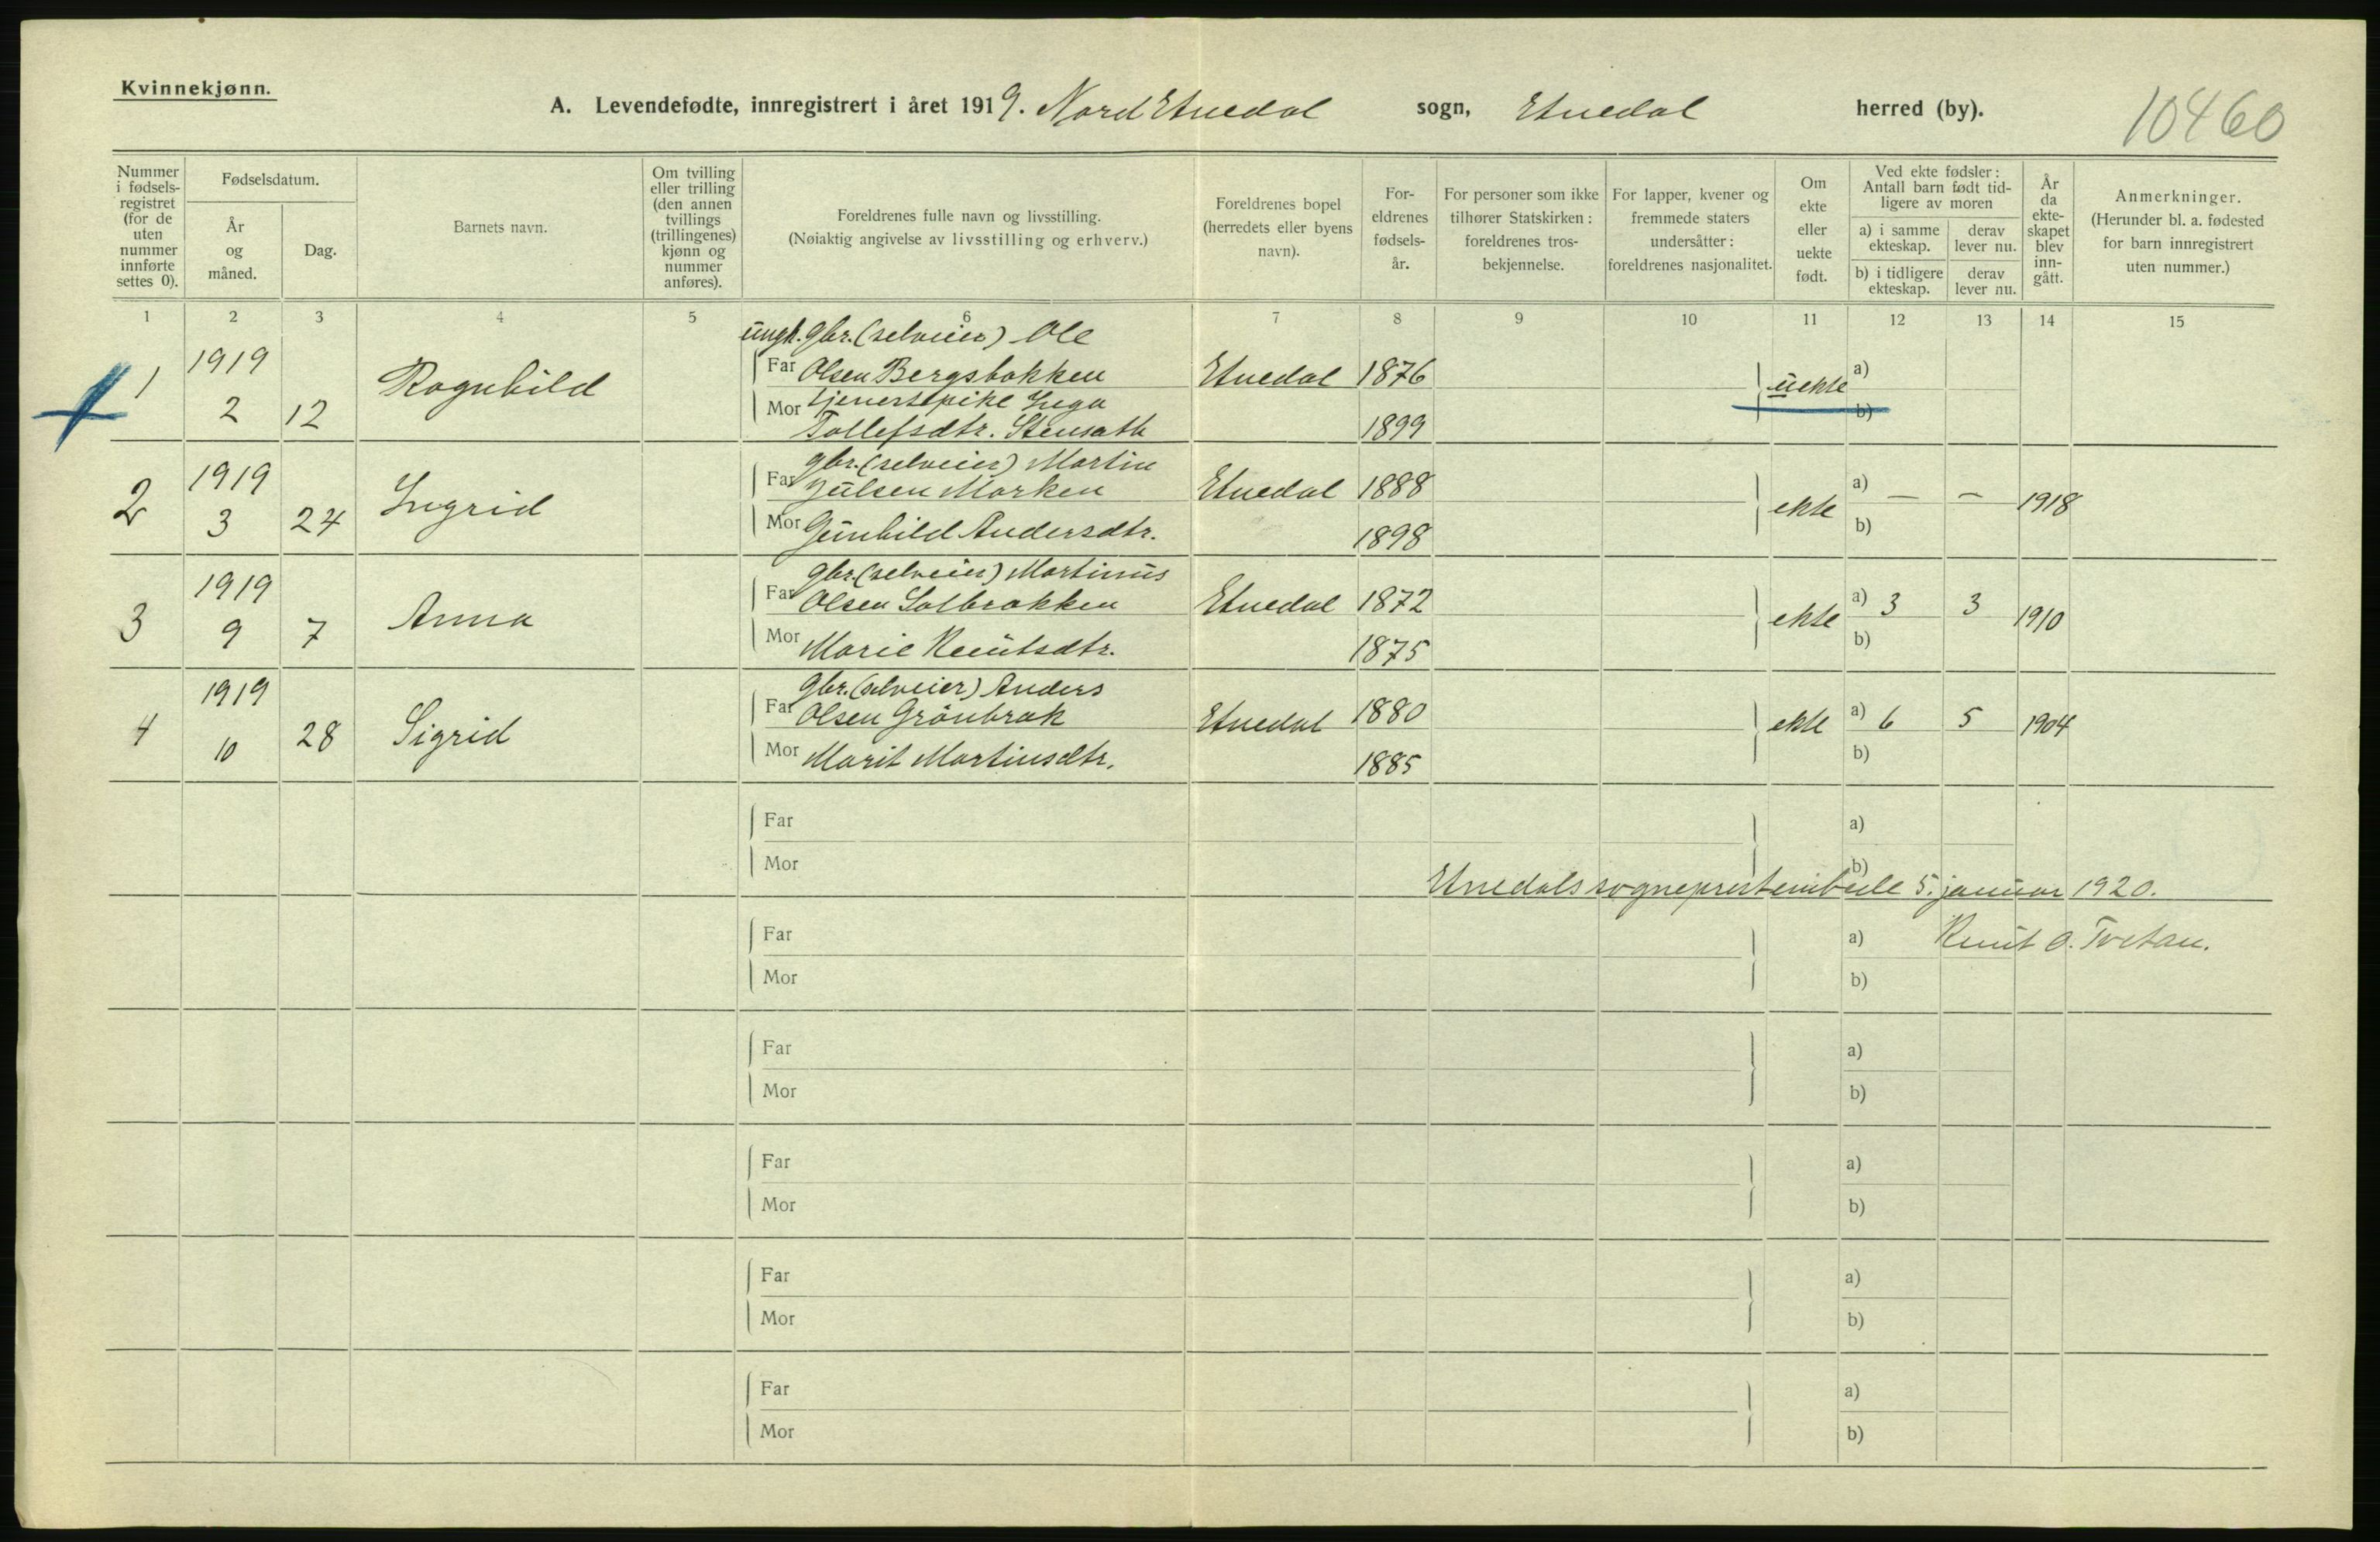 Kvinnekjønn.
A. Levendefødte, innregistrert i året 1919. Nord Etnedal sogn, Etnedal herred (by).
10460
Nummer i fødsels- registret (for de uten nummer innførte settes 0).
Fødselsdatum.
År og måned.
Dag.
Barnets navn.
Om tvilling eller trilling (den annen tvillings (trillingenes) kjønn og nummer anføres).
Foreldrenes fulle navn og livsstilling.
(Nøiaktig angivelse av livsstilling og erhverv.)
Foreldrenes bopel (herredets eller byens navn).
For- eldrenes fødsels- år.
For personer som ikke tilhører Statskirken: foreldrenes tros- bekjennelse.
For lapper, kvener og fremmede staters undersåtter: foreldrenes nasjonalitet.
Om ekte eller uekte født.
Ved ekte fødsler: Antall barn født tid- ligere av moren
a) i samme ekteskap.
derav lever nu.
b) i tidligere ekteskap.
derav lever nu.
År da ekte- skapet blev inn- gått.
Anmerkninger.
(Herunder bl. a. fødested for barn innregistrert uten nummer.)
1 2 3 4 5 6 7 8 9 10 11 12 13 14 15
ungk. gbr. (selveier) Ole
1 1919 Far Olsen Bergsbakken Etnedal 1876 uekte a)
2 12 Ragnhild Mor tjenestpike Inga b)
Tollefsdtr. Stensath 1899
gbr. (selveier) Martin
2 1919 Far Julsen Marken Etnedal 1888 ekte a) — — 1918
3 24 Ingrid Mor Gunhild Andersdtr. 1898 b)
gbr. (selveier) Martinus
3 1919 Far Olsen Solbrakken Etnedal 1872 ekte a) 3 3 1910
9 7 Anna Mor Marie Knutsdtr. 1875 b)
gbr. (selveier) Anders
4 1919 Far Olsen Grönbrak Etnedal 1880 ekte a) 6 5 1904
10 28 Sigrid Mor Marit Martinsdtr. 1885 b)
Far a)
Mor b)
Etnedals sogneprestembede 5. januar 1920.
Far a) Knut O. Tvetan.
Mor b)
Far a)
Mor b)
Far a)
Mor b)
Far a)
Mor b)
Far a)
Mor b)